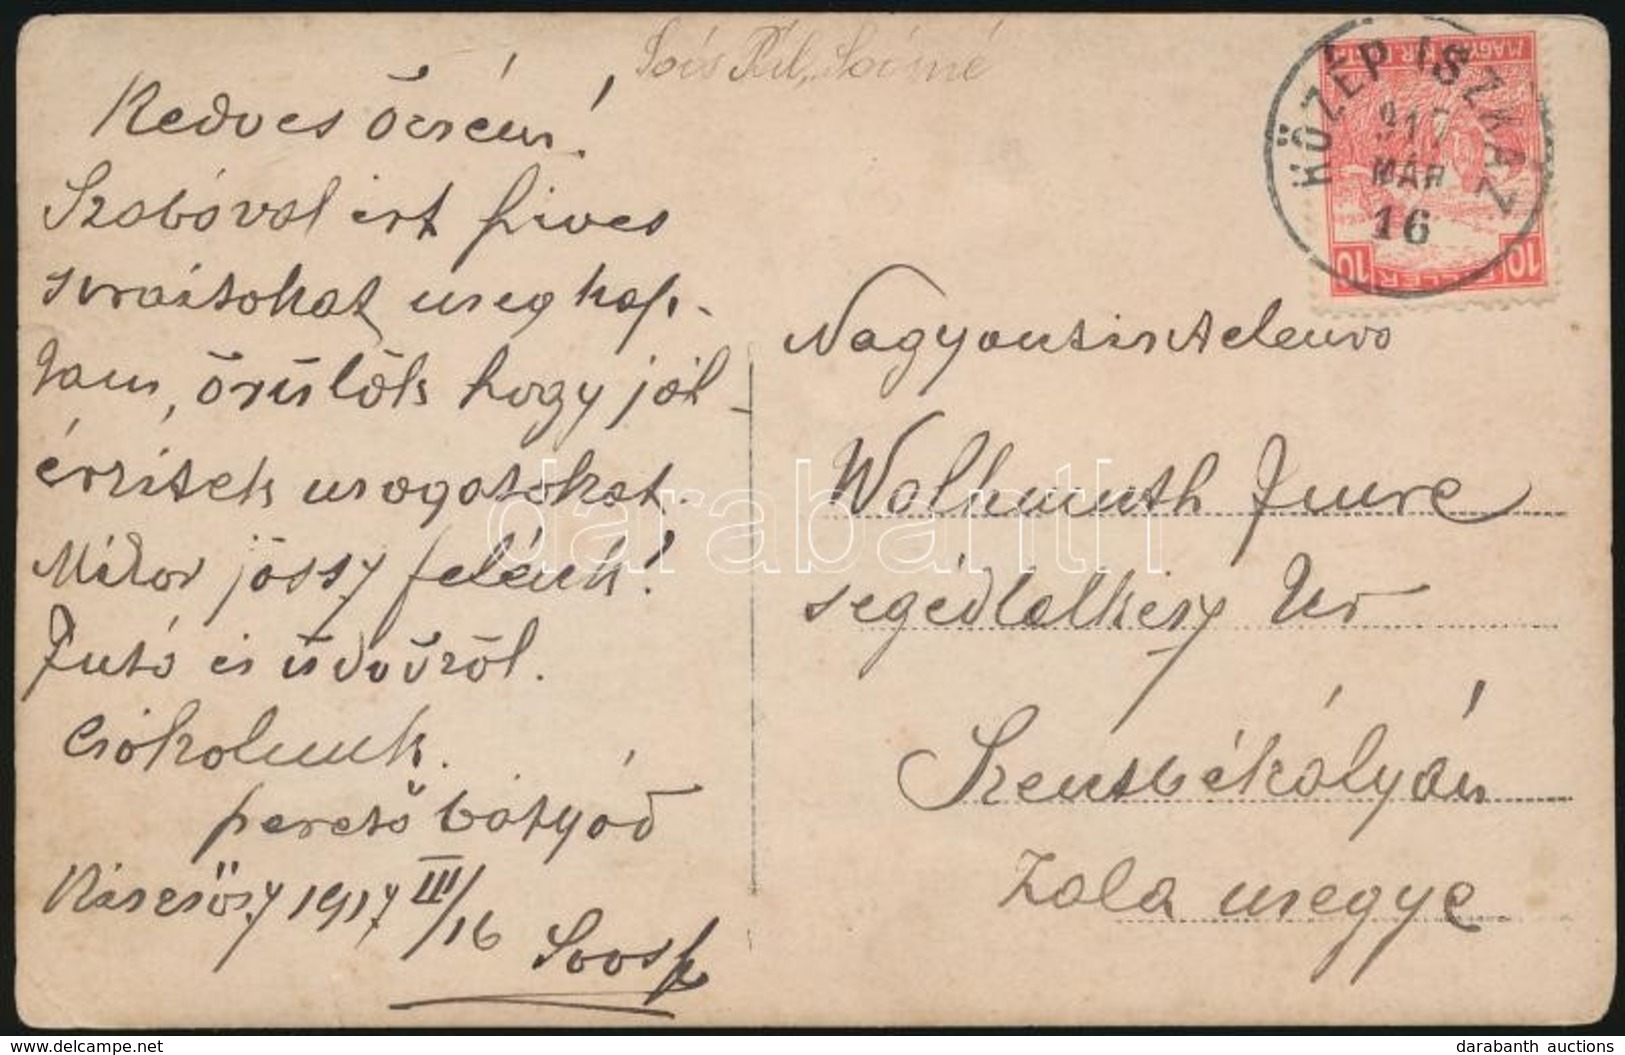 Soós Pál, Soósné
Kedves Öcsém!
Szabóval írt szives
soraitokat megkap-
tam, örülök hogy jól
érzitek magatokat.
Mikor jössz felénk!
Jutó és
csókolunk.
szerető bátyád
1917 III/16
Soós P
KÖZÉP ISZKÁZ
917
MÁR
16
MAGYAR KIR. POSTA
10 FILLÉR 10
Nagyontisztelendő
Wolhmuth Imre
segédlelkész Úr
Szentbékályán
Zala megye
darabanth
delcampe.net
darabanth auctions